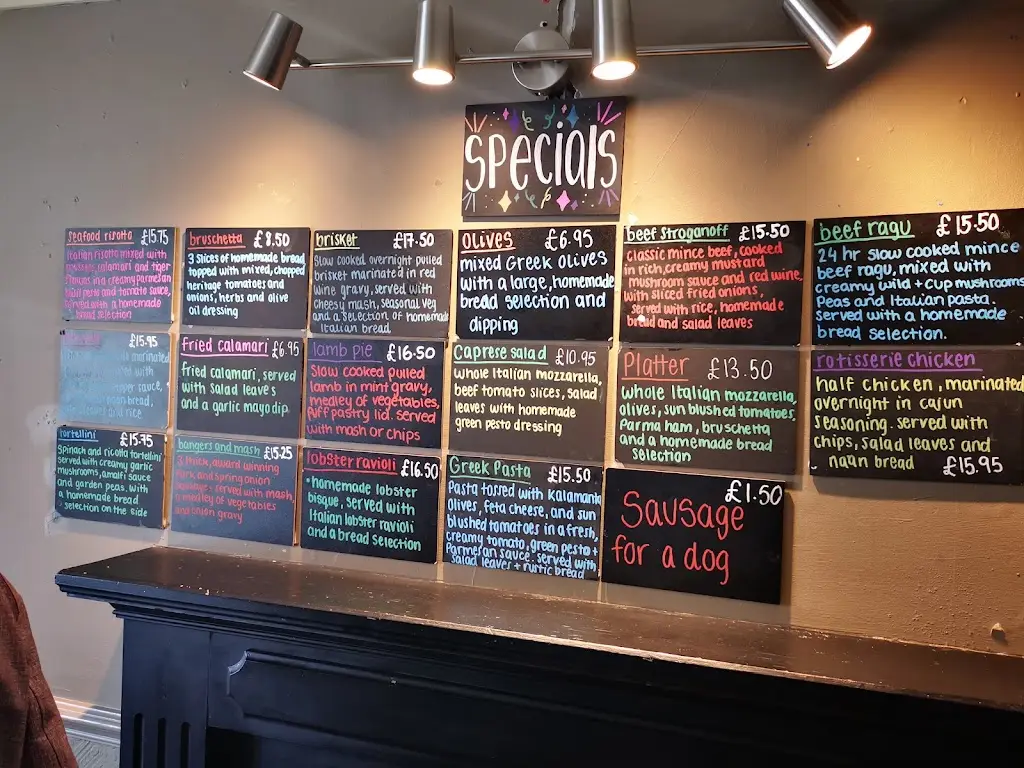 specials
seafood risotto £15.75
Italian risotto mixed with
calamari and tiger
in a creamy parmesan
pesto and tomato sauce,
served with a homemade
bread selection
bruschetta £8.50
3 slices of homemade bread
topped with mixed, chopped
heritage tomatoes and
onions, herbs and olive
oil dressing
brisket £17.50
Slow cooked overnight pulled
brisket marinated in red
wine gravy, served with
cheesy mash, seasonal veg
and a selection of homemade
Italian bread
Olives £6.95
mixed Greek Olives
with a large, homemade
bread selection and
dipping
beef Stroganoff £15.50
classic mince beef, cooked
in rich, creamy mustard
mushroom sauce and red wine,
with sliced fried onions,
served with rice, homemade
bread and salad leaves
beef ragu £15.50
24 hr slow cooked mince
beef ragu, mixed with
creamy wild + cup mushrooms
Peas and Italian pasta.
served with a homemade
bread selection.
£15.95
marinated
with
pepper sauce,
bread,
and rice
fried calamari £6.95
fried calamari, served
with salad leaves
and a garlic mayo dip
lamb pie £16.50
Slow cooked pulled
lamb in mint gravy,
medley of vegetables,
Puff pastry lid. served
with mash or chips
Caprese salad £10.95
whole Italian mozzarella,
beef tomato slices, salad
leaves with homemade
green pesto dressing
Platter £13.50
whole Italian mozzarella,
olives, sun blushed tomatoes,
Parma ham, bruschetta
and a homemade bread
selection
rotisserie chicken
half chicken, marinated
overnight in cajun
seasoning. served with
chips, salad leaves and
naan bread £15.95
tortellini £15.75
Spinach and ricotta tortellini
served with creamy garlic
mushrooms, amalfi sauce
and garden peas. with
a homemade bread
selection on the side
bangers and mash £15.25
3 thick, award winning
Pork and Spring onion
sausages - served with mash,
a medley of vegetables
and onion gravy
lobster ravioli £16.50
*homemade lobster
bisque, served with
Italian lobster ravioli
and a bread selection
Greek Pasta £15.50
Pasta tossed with Kalamata
olives, feta cheese, and sun
blushed tomatoes in a fresh,
creamy tomato, green pesto +
Parmesan sauce. served with
salad leaves + rustic bread
£1.50
Sausage
for a dog